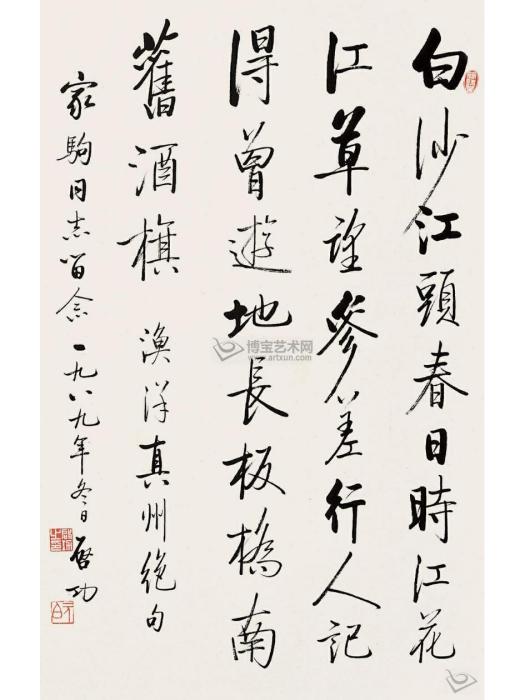 白沙江頭春日時江花
江草望參差行人記
得曾遊地長板橋南
舊酒旗 漁洋真州絕句
家駒同志留念 一九八九年冬日 啓功
博宝艺术网
www.artxun.com